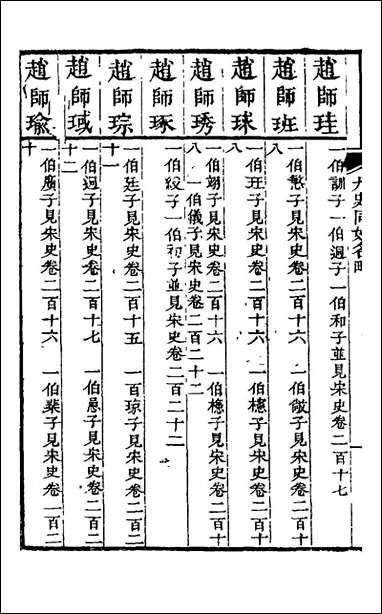 九史同姓名略
趙師珪
一伯訓子一伯迥子一伯和子並見宋史卷二百十七
趙師班
一伯慜子見宋史卷二百十六 一伯儆子見宋史卷二百十
八
趙師球
一伯玨子見宋史卷二百十六 一伯橞子見宋史卷二百十
八
趙師琇
一伯翊子見宋史卷二百十六 一伯橞子見宋史卷二百十
八 一伯儀子見宋史卷二百二十二
趙師琢
一伯絞子一伯和子並見宋史卷二百二十二
趙師琮
一伯廷子見宋史卷二百十五 一百琼子見宋史卷二百二
十一
趙師珹
一伯迥子見宋史卷二百十七 一伯㥯子見宋史卷二百二
十二
趙師瑜
一伯廣子見宋史卷二百十六 一伯葉子見宋史卷一百二
十